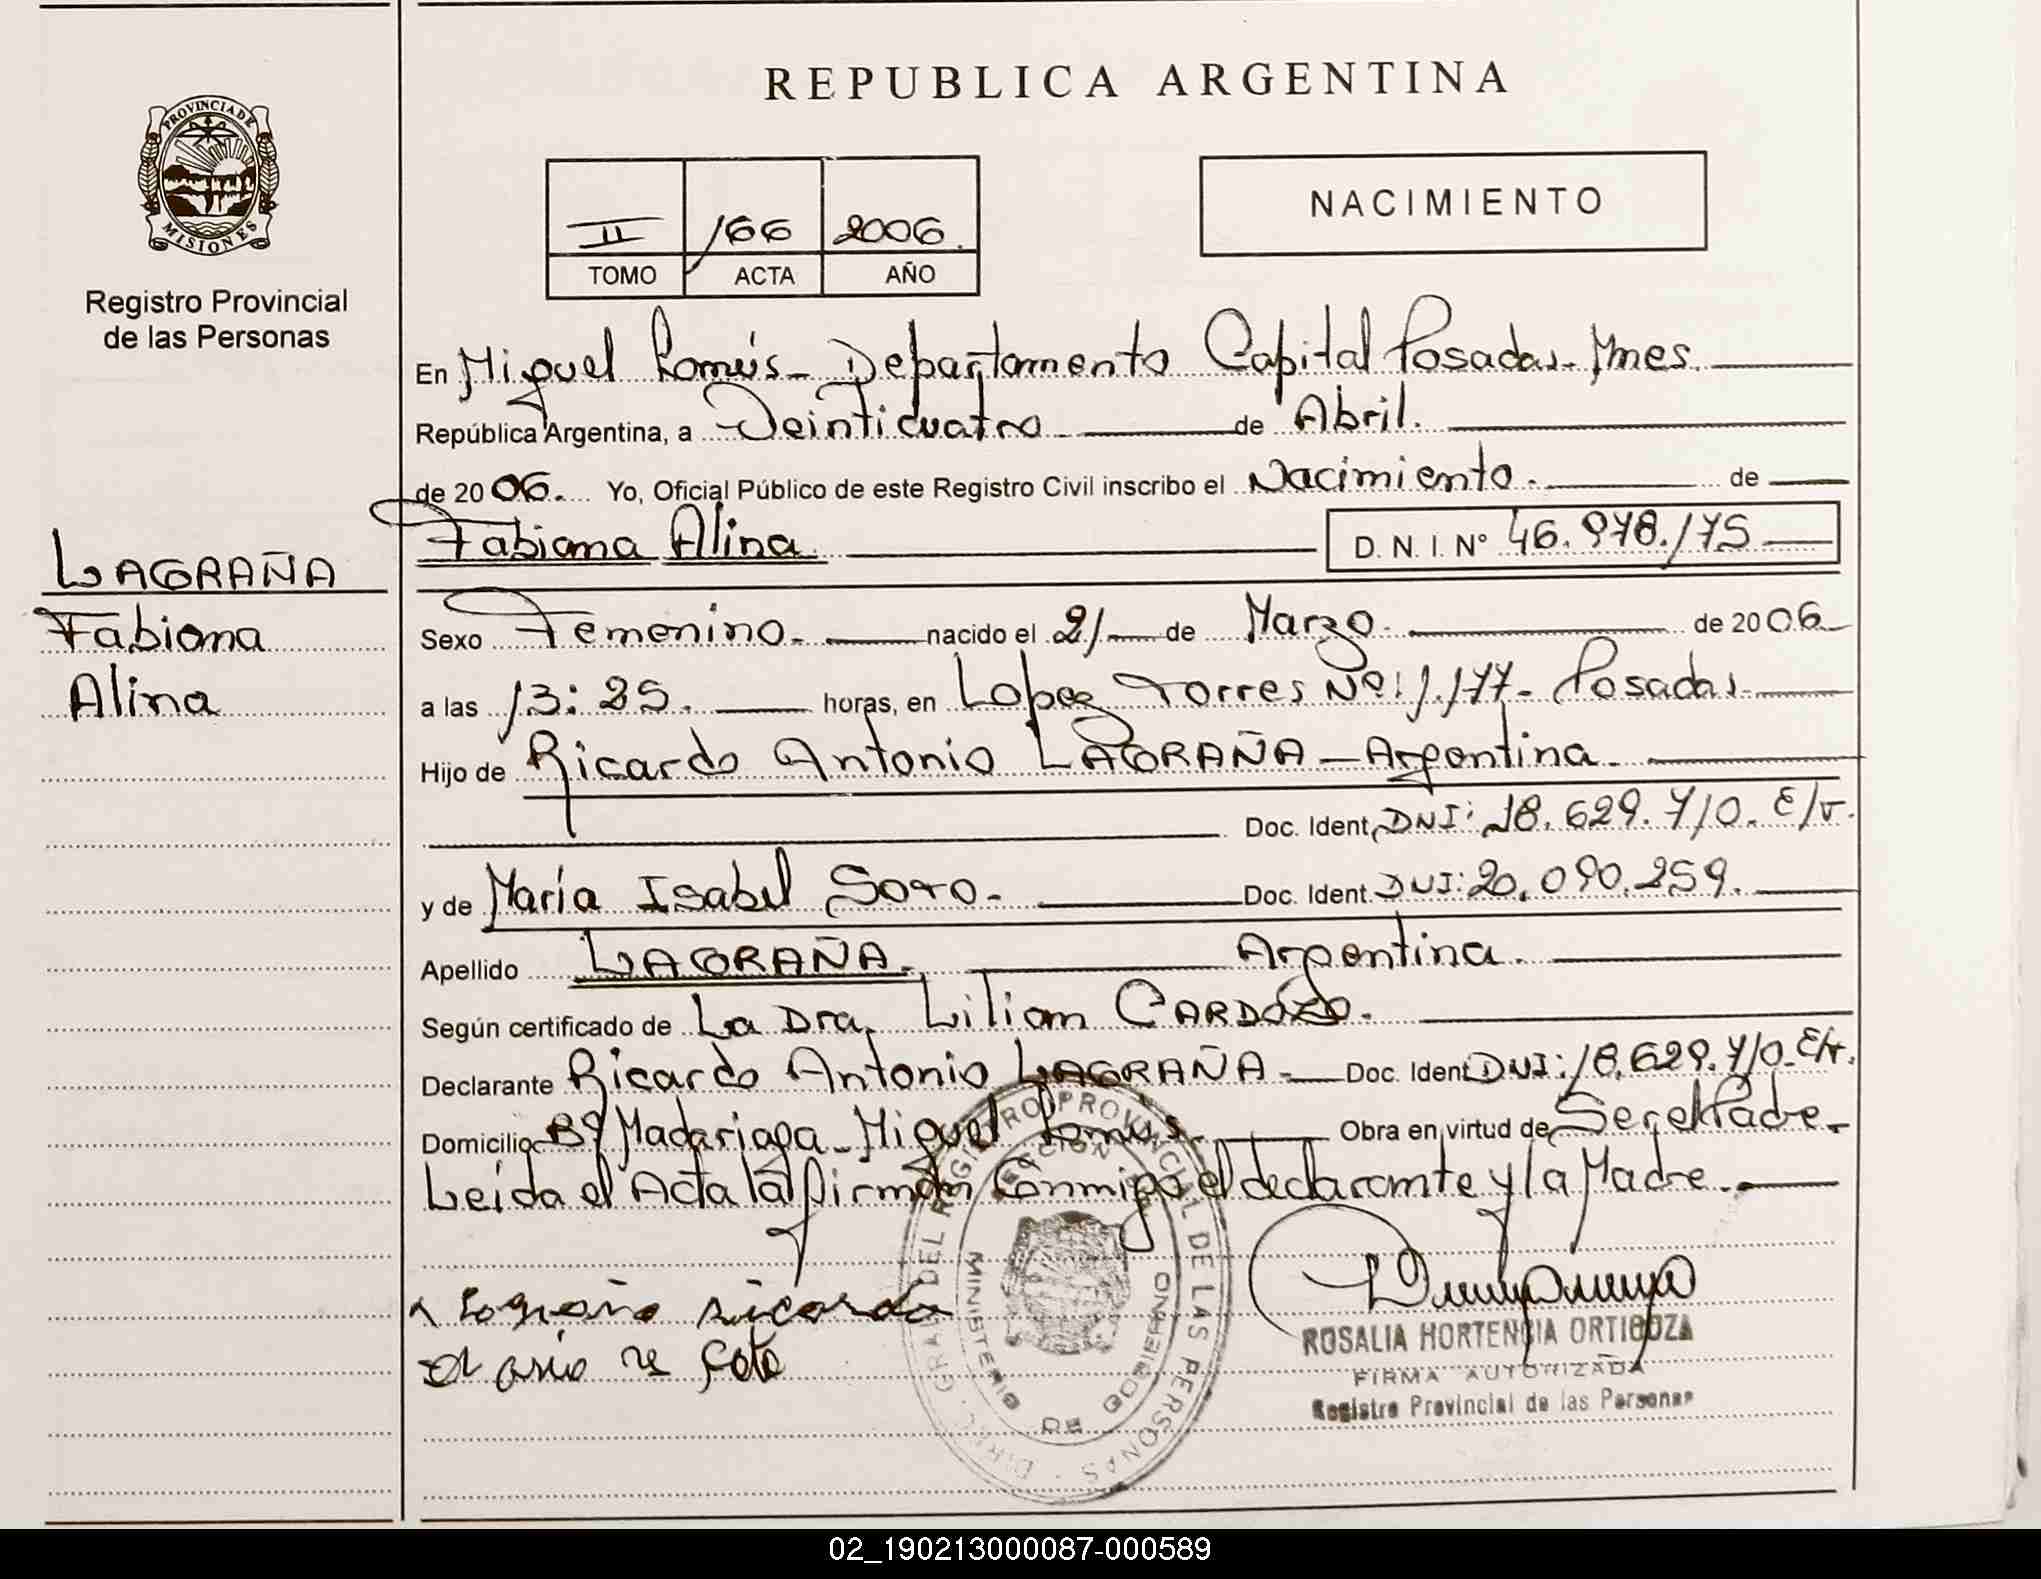 REPUBLICA ARGENTINA
PROVINCIA DE
MISIONES
Registro Provincial
de las Personas
II 166 2006.
TOMO ACTA AÑO
NACIMIENTO
En Miguel Lanús - Departamento Capital Posadas - Mnes.
República Argentina, a Veinticuatro de Abril.
de 2006. Yo, Oficial Público de este Registro Civil inscribo el Nacimiento. de
Fabiana Alina D. N. I. Nº 46.978.175
LAGRAÑA
Fabiana
Alina
Sexo Femenino. nacido el 21 de Marzo. de 2006
a las 13:25. horas, en Lopez Torres Nº: 1.177 - Posadas.
Hijo de Ricardo Antonio LAGRAÑA - Argentina.
Doc. Ident. DNI: 18.629.710. E/T.
y de María Isabel Soto. Doc. Ident. DNI: 20.090.259.
Apellido LAGRAÑA. Argentina.
Según certificado de La Dra. Lilian CARDOZO.
Declarante Ricardo Antonio LAGRAÑA - Doc. Ident DNI: 18.629.710. E/T.
Domicilio Bº Madariaga - Miguel Lanús. Obra en virtud de Ser el Padre.
Leída el Acta la firman Conmigo el declarante y la Madre.
Lagraña Ricardo
ROSALIA HORTENCIA ORTIGOZA
FIRMA AUTORIZADA
Registro Provincial de las Personas
DIREC. GRAL DEL REGISTRO PROVINCIAL DE LAS PERSONAS
MINISTERIO DE GOBIERNO
02_190213000087-000589